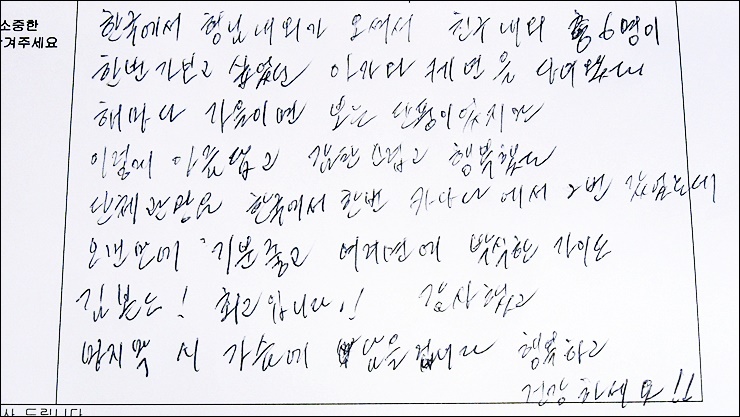 소중한
겨주세요
한국에서 형님 내외가 오셔서 친구 내외 총 6명이
한번 가보고 싶었던 아가와 케년을 다녀왔습니다
해마다 가을이면 보는 단풍이었지만
이렇게 아름답고 감탄스럽고 행복했다
단체관광은 한국에서 한번 카나다에서 2번 갔었는데
오랜만에 기분좋고 여러면에 박식한 가이드
김본느! 최고입니다! 감사했고
가슴에 담을겁니다 행복하고
건강하세요!!
사 드립니다